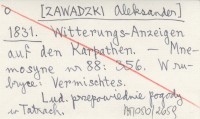 o [ZAWADZKI Aleksander]
1831. Witterungs-Anzeigen
auf den Karpathen. — Mne-
mosyne nr 88: 356. W ru-
bryce: Vermischtes.
Lud. przepowiednie pogody
w Tatrach.